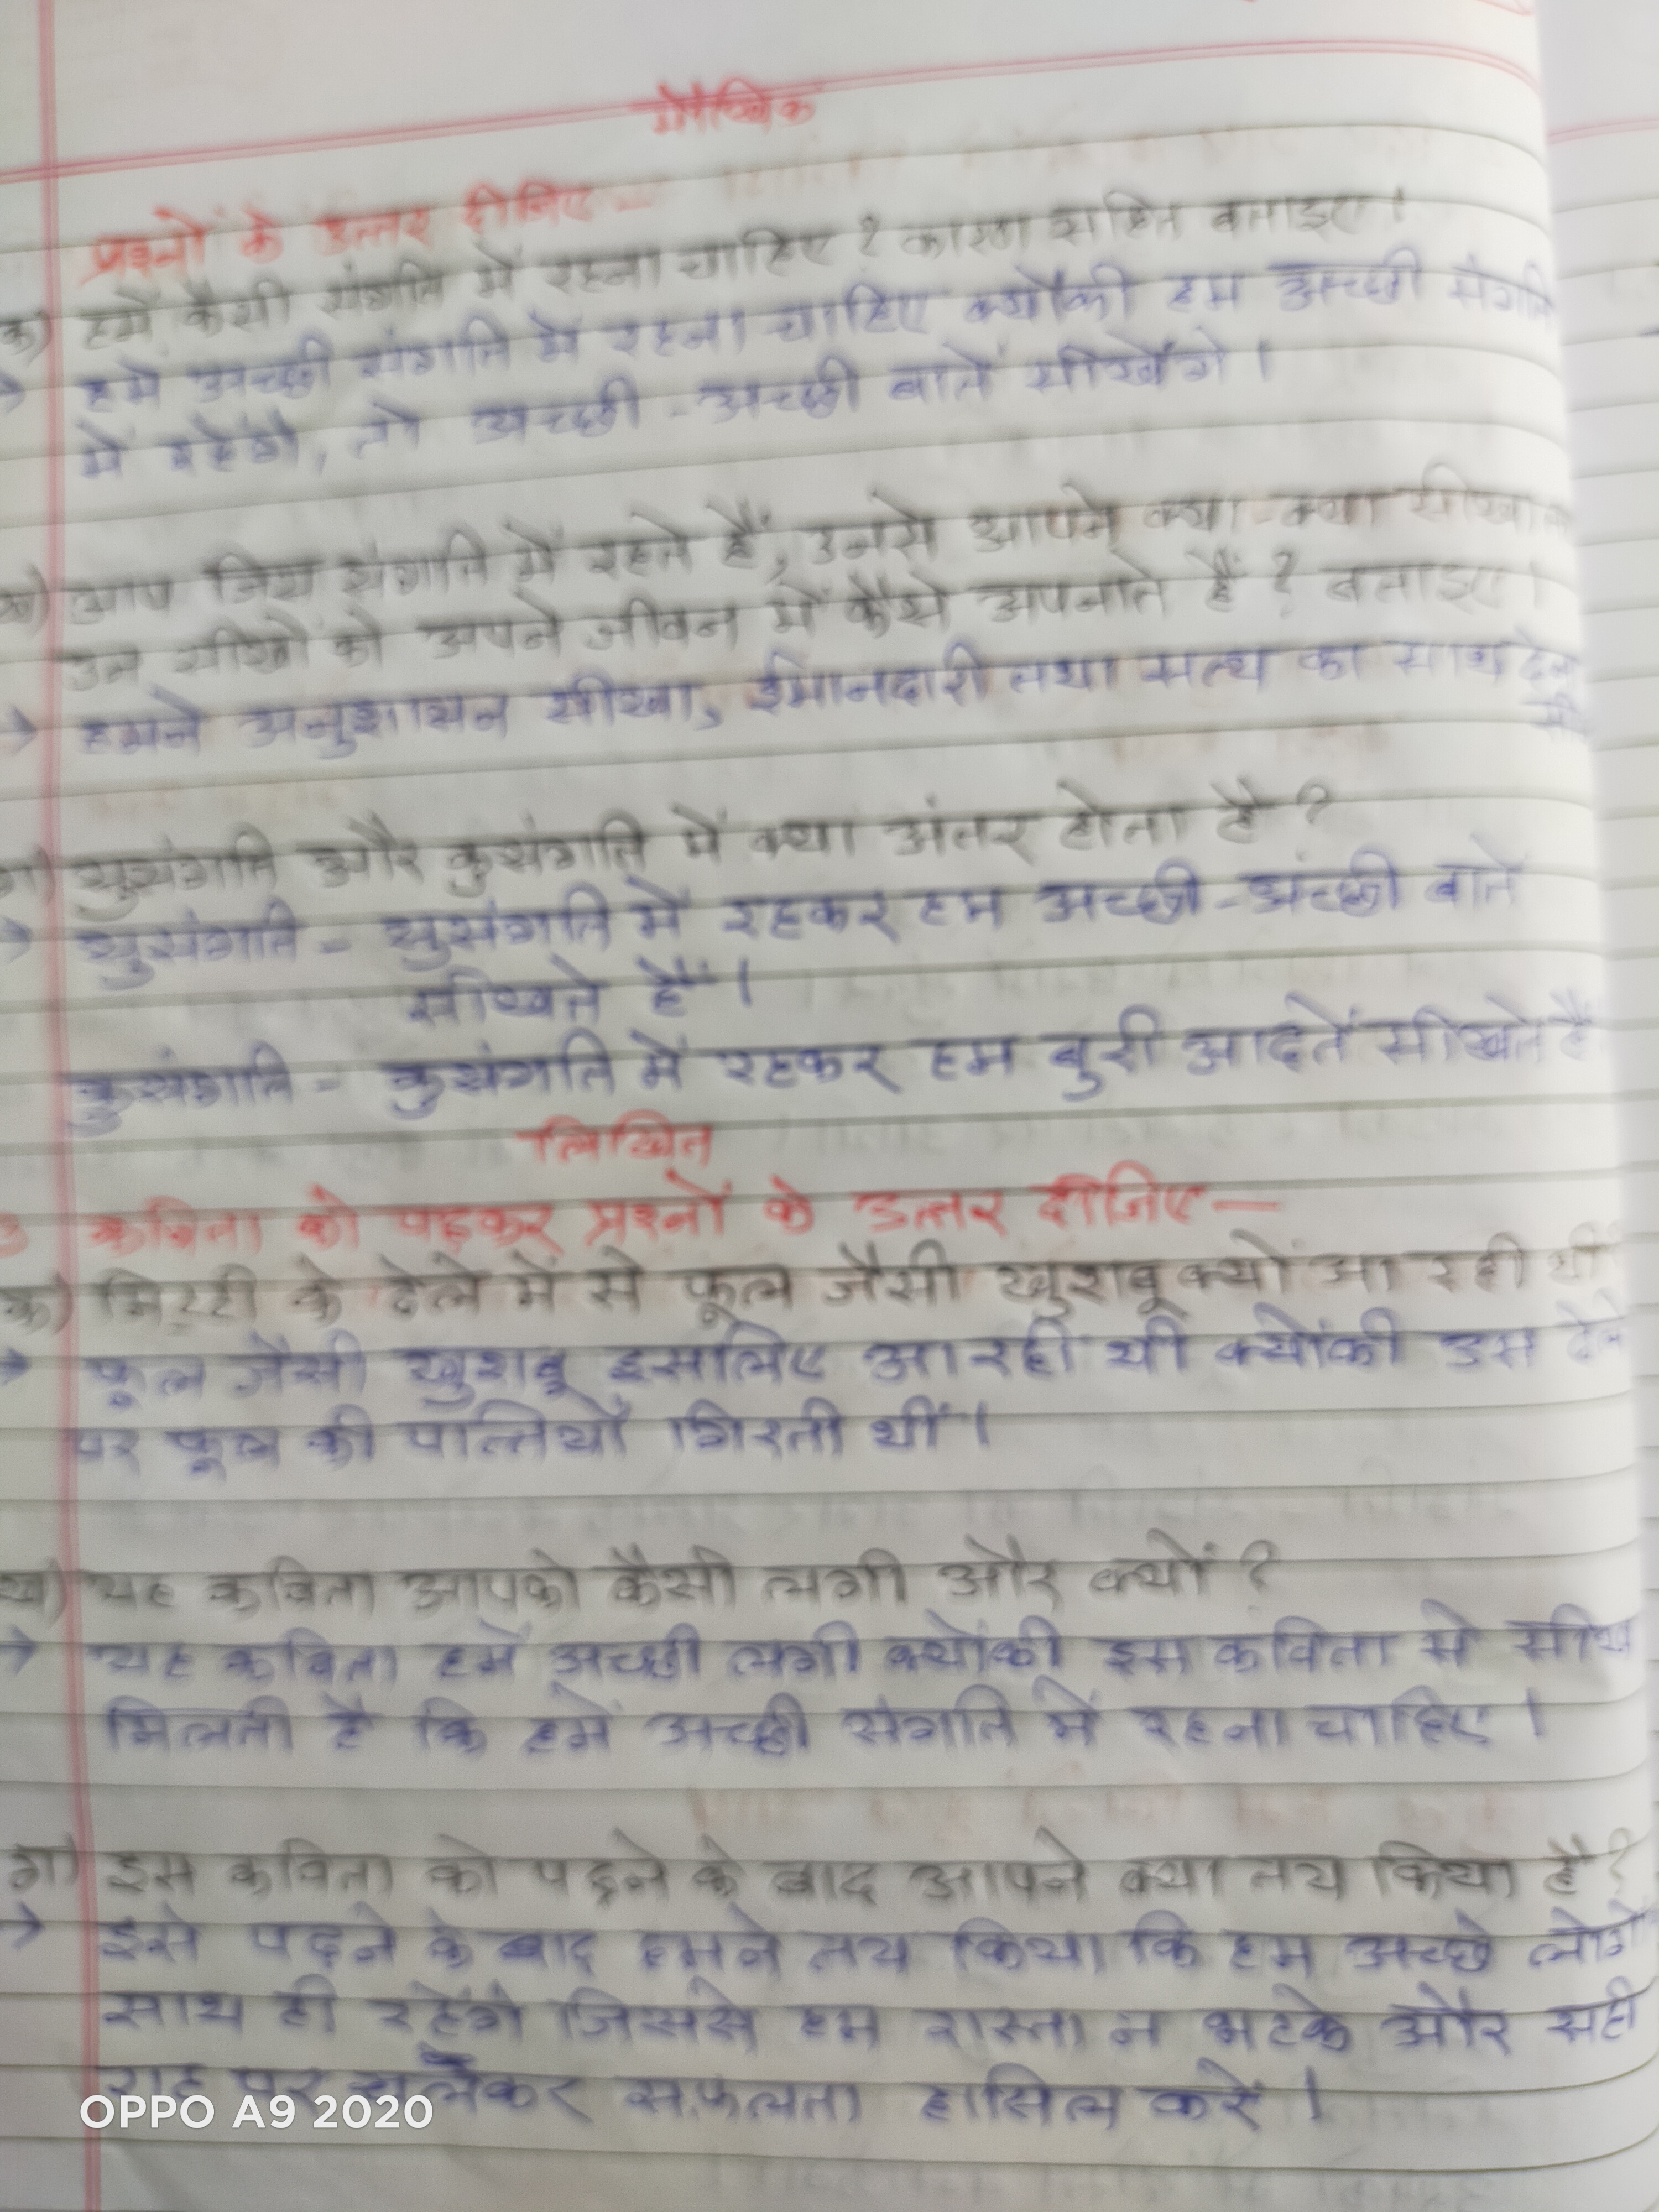 मौखिक
प्रश्नों के उत्तर दीजिए –
क) हमें कैसी संगति में रहना चाहिए ? कारण सहित बताइए।
→ हमें अच्छी संगति में रहना चाहिए क्योंकी हम अच्छी संगति
में रहेंगे, तो अच्छी - अच्छी बातें सीखेंगे।
ख) आप जिस संगति में रहते हैं, उनसे आपने क्या-क्या सीखा
उन सीखों को अपने जीवन में कैसे अपनाते हैं ? बताइए।
→ हमने अनुशासन सीखा, ईमानदारी तथा सत्य का साथ देना
ग) सुसंगति और कुसंगति में क्या अंतर होता है ?
→ सुसंगति - सुसंगति में रहकर हम अच्छी - अच्छी बातें
सीखते हैं।
कुसंगति - कुसंगति में रहकर हम बुरी आदतें सीखते हैं
लिखित
कविता को पढ़कर प्रश्नों के उत्तर दीजिए –
क) मिट्टी के ढेले में से फूल जैसी खुशबू क्यों आ रही थी
→ फूल जैसी खुशबू इसलिए आ रही थी क्योंकी उस ढेले
पर फूल की पत्तियाँ गिरती थीं।
ख) यह कविता आपको कैसी लगी और क्यों ?
→ यह कविता हमें अच्छी लगी क्योंकी इस कविता से सीख
मिलती है कि हमें अच्छी संगति में रहना चाहिए।
ग) इस कविता को पढ़ने के बाद आपने क्या तय किया है ?
→ इसे पढ़ने के बाद हमने तय किया कि हम अच्छे लोगों
साथ ही रहेंगे जिससे हम रास्ता न भटके और सही
राह पर चलकर सफलता हासिल करें।
OPPO A9 2020